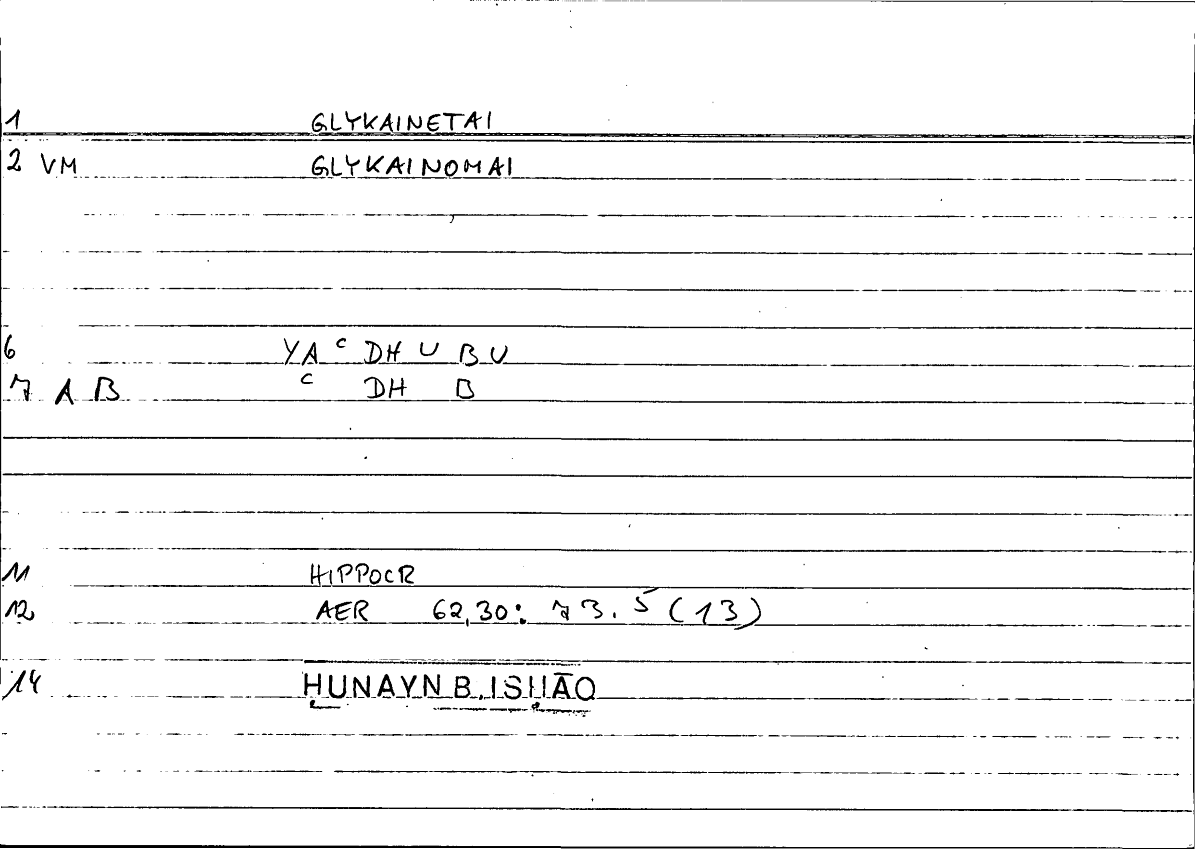 1 GLYKAINETAI
2 VM GLYKAINOMAI
6 YA ᶜ DH U B U
7 A B ᶜ DH B
11 HIPPOCR
12 AER 62,30: 73.5 (13)
14 ḤUNAYN B. ISḤĀQ